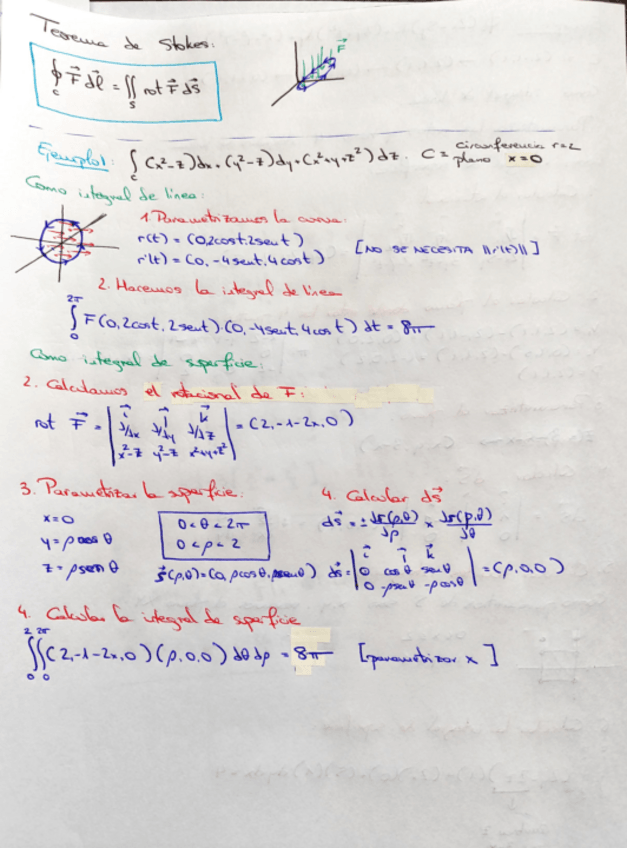 Teorema de Stokes:
∮c F⃗ dl⃗ = ∬s rot F⃗ ds⃗
F⃗
Ejemplo1: ∫c (x²-z)dx + (y²-z)dy + (x²+y+z²)dz. C = circunferencia r=2 plano x=0
Como integral de linea:
1. Parametrizamos la curva:
r(t) = (0, 2cost, 2sent)
r'(t) = (0, -4sent, 4cost) [NO SE NECESITA ||r'(t)||]
2. Hacemos la integral de linea
∫₀^2π F(0, 2cost, 2sent)·(0, -4sent, 4cost) dt = 8π
Como integral de superficie:
2. Calculamos el rotacional de F:
rot F⃗ = | i⃗ j⃗ k⃗ | = (2, -1-2x, 0)
∂/∂x ∂/∂y ∂/∂z
x²-z y²-z x²+y+z²
3. Parametrizar la superficie:
x=0
y=ρcosθ
z=ρsenθ
0<θ<2π
0<ρ<2
s⃗(ρ,θ)=(0, ρcosθ, ρsenθ)
4. Calcular ds⃗
ds⃗ = ± ∂s(ρ,θ)/∂ρ × ∂s(ρ,θ)/∂θ
ds⃗ = | i⃗ j⃗ k⃗ | = (ρ,0,0)
0 cosθ senθ
0 -ρsenθ -ρcosθ
4. Calcular la integral de superficie
∫₀²∫₀^2π (2, -1-2x, 0)(ρ,0,0) dθ dρ = 8π [parametrizar x]